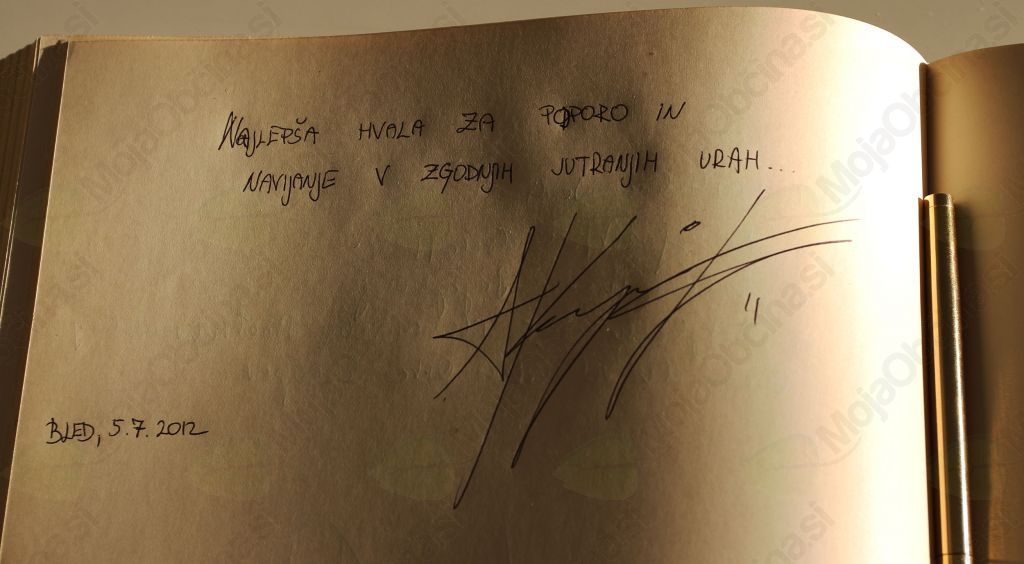 NAJLEPŠA HVALA ZA PODPORO IN
NAVIJANJE V ZGODNJIH JUTRANJIH URAH...
BLED, 5.7.2012
MojaObčina.si